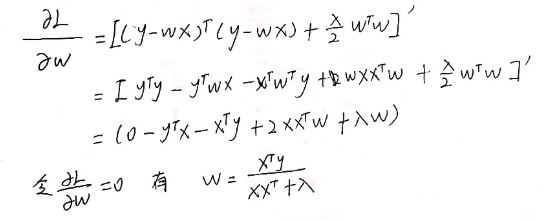 ∂L/∂w = [(y-wx)ᵀ(y-wx) + λ/2 wᵀw]′
= [yᵀy - yᵀwx - xᵀwᵀy + wxxᵀw + λ/2 wᵀw]′
= (0 - yᵀx - xᵀy + 2xxᵀw + λw)
令 ∂L/∂w = 0 有 w = xᵀy / (xxᵀ + λ)